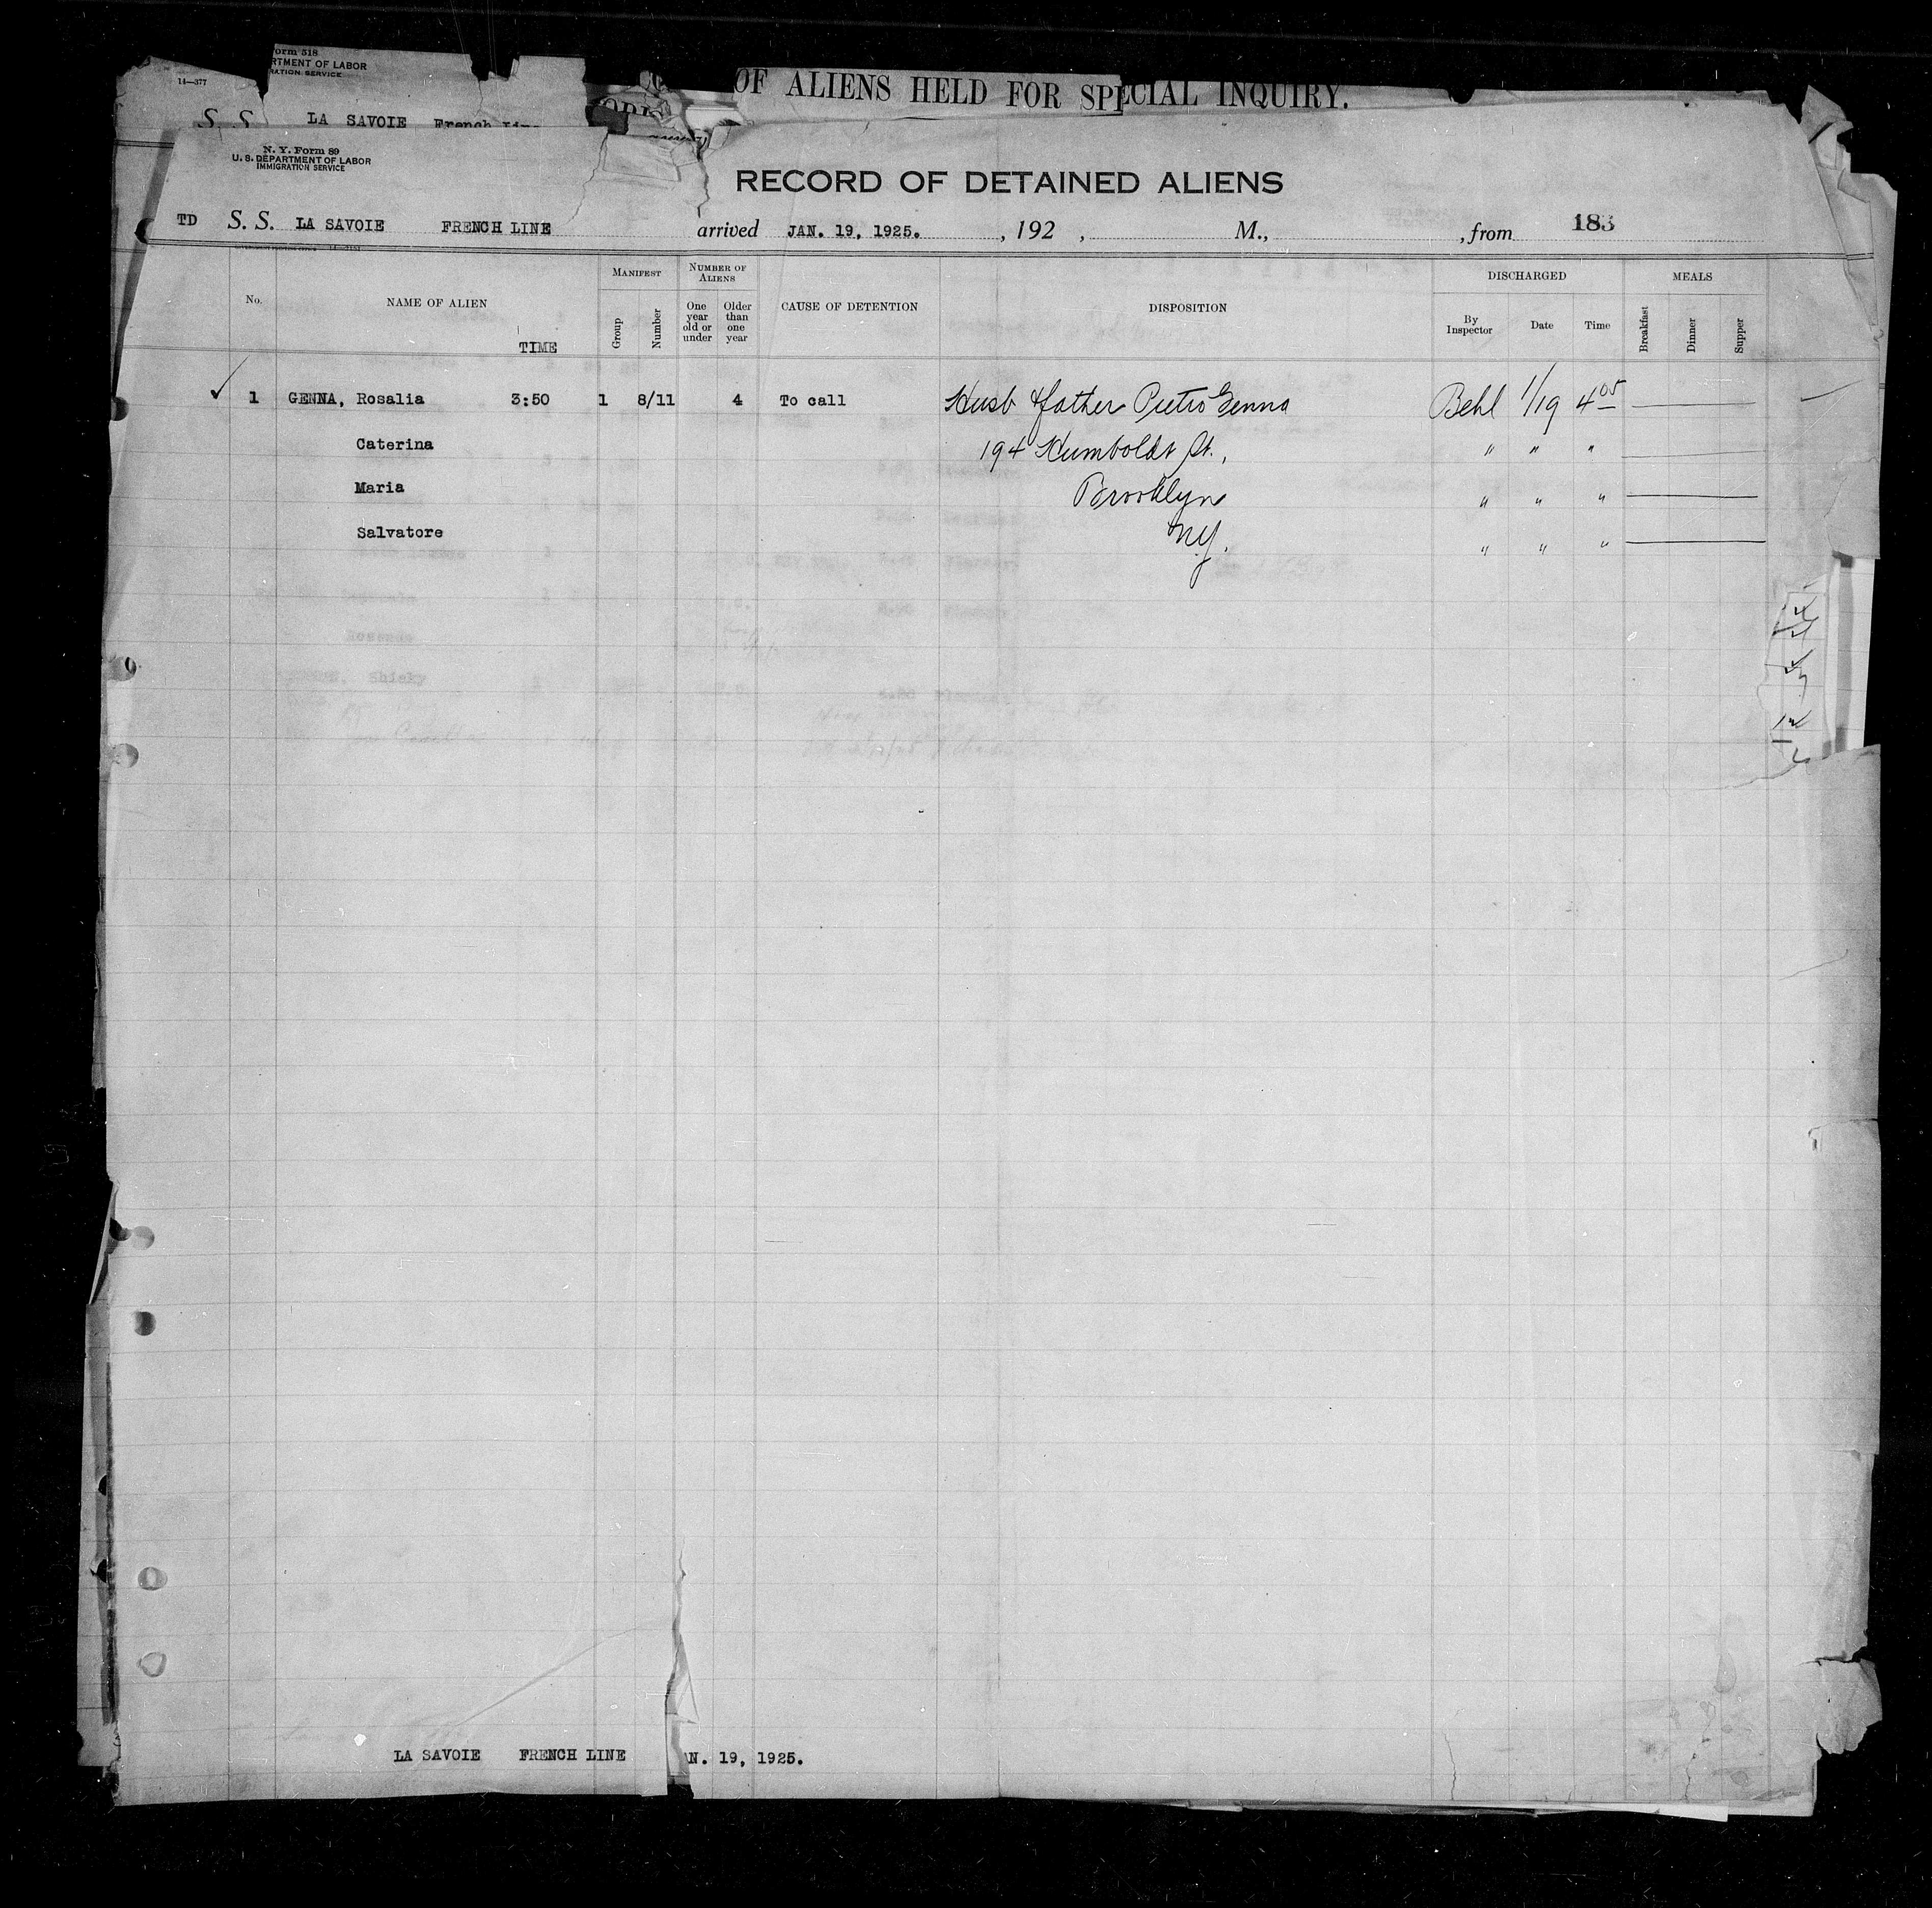 Form 518
14—377
RTMENT OF LABOR
RATION SERVICE
OF ALIENS HELD FOR SPECIAL INQUIRY.
S. S. LA SAVOIE French Line
N. Y. Form 89
U. S. DEPARTMENT OF LABOR
IMMIGRATION SERVICE
RECORD OF DETAINED ALIENS
TD S. S. LA SAVOIE FRENCH LINE arrived JAN. 19, 1925. , 192 , M., , from 183
No. NAME OF ALIEN TIME MANIFEST Group Number NUMBER OF ALIENS One year old or under Older than one year CAUSE OF DETENTION DISPOSITION DISCHARGED By Inspector Date Time MEALS Breakfast Dinner Supper
✓ 1 GENNA, Rosalia 3:50 1 8/11 4 To call Husb & father Pietro Genna Behl 1/19 4 05
Caterina 194 Humboldt St., " " "
Maria Brooklyn " " "
Salvatore N.Y. " " "
LA SAVOIE FRENCH LINE AN. 19, 1925.